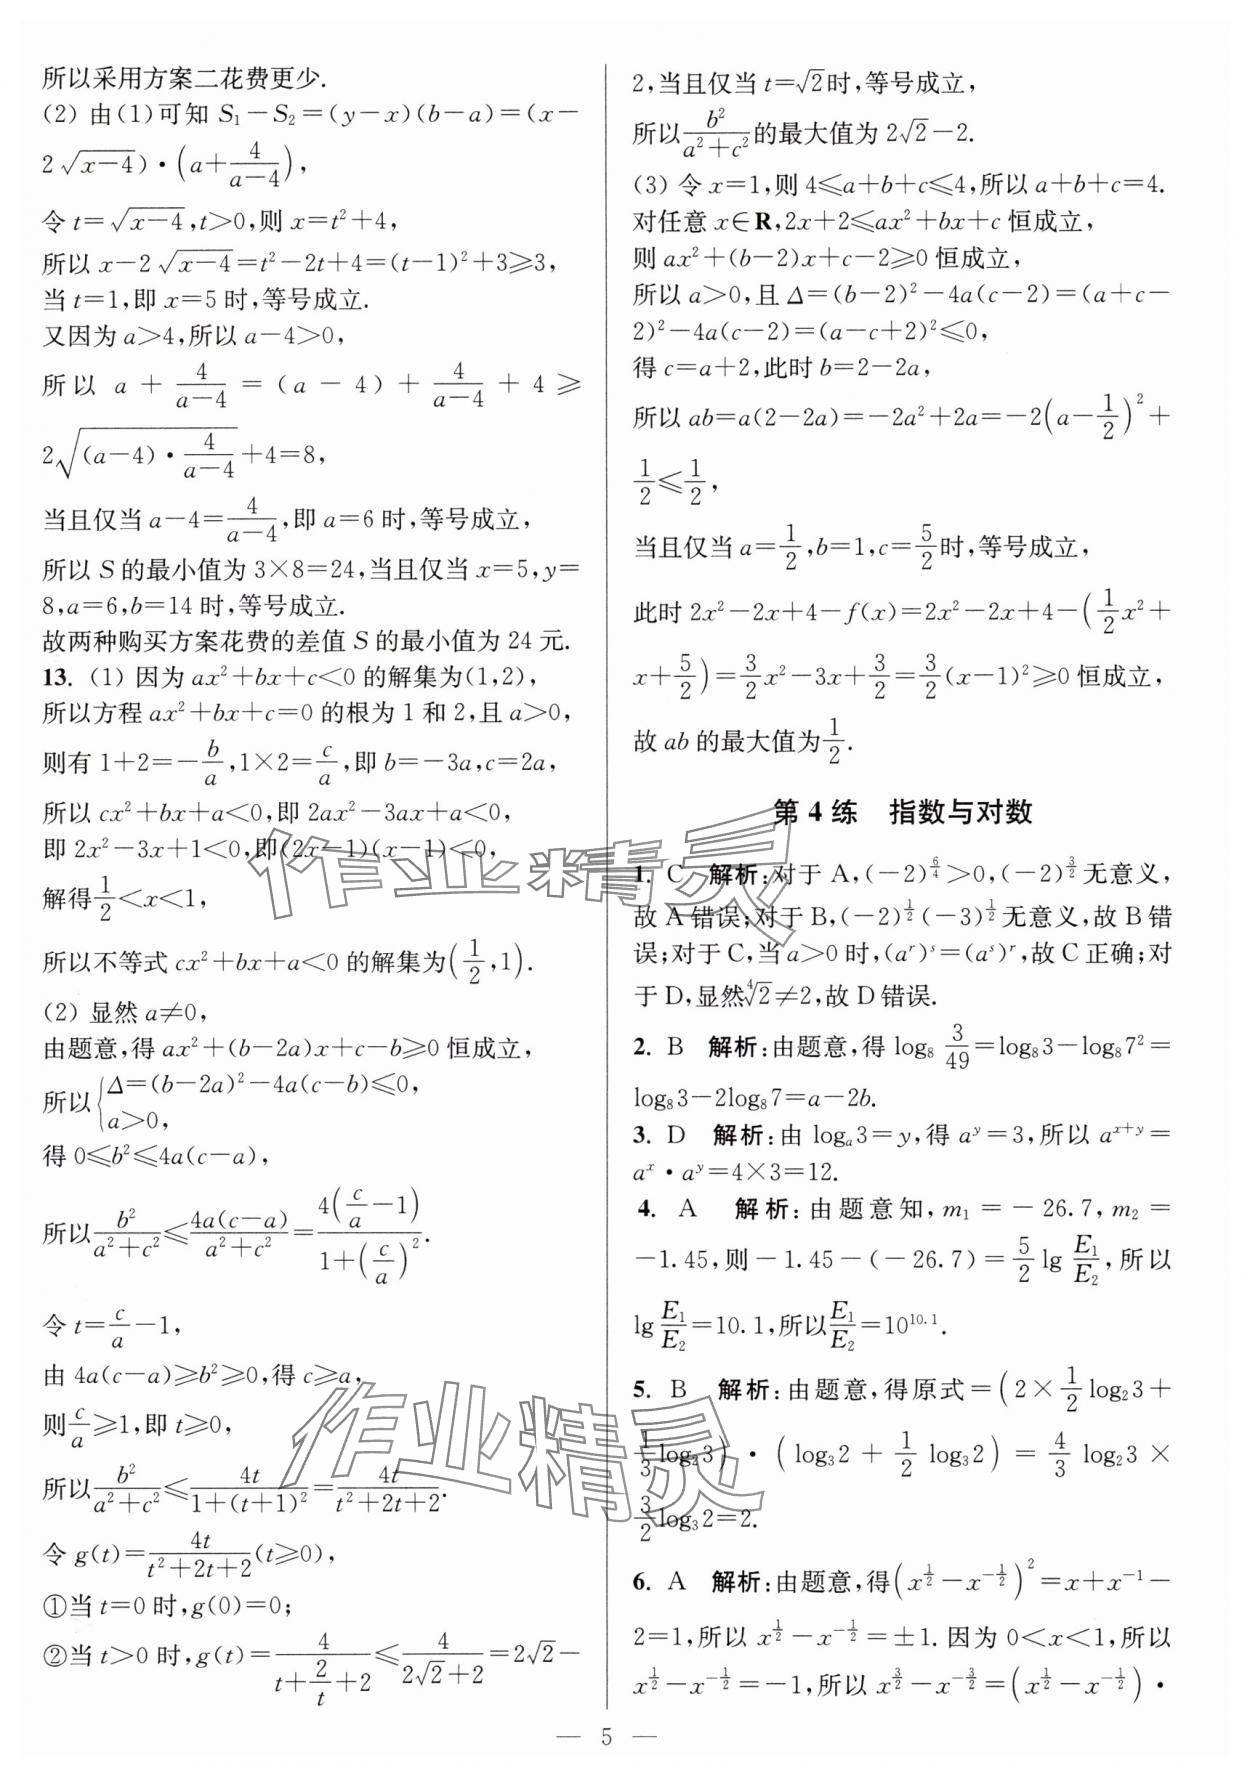 所以采用方案二花费更少.
(2) 由(1)可知 S₁－S₂＝(y－x)(b－a)＝(x－
2√(x－4))·(a＋4/(a－4)),
令 t＝√(x－4),t>0,则 x＝t²＋4,
所以 x－2√(x－4)＝t²－2t＋4＝(t－1)²＋3≥3,
当 t＝1,即 x＝5 时,等号成立.
又因为 a>4,所以 a－4>0,
所以 a＋4/(a－4)＝(a－4)＋4/(a－4)＋4≥
2√((a－4)·4/(a－4))＋4＝8,
当且仅当 a－4＝4/(a－4),即 a＝6 时,等号成立,
所以 S 的最小值为 3×8＝24,当且仅当 x＝5,y＝
8,a＝6,b＝14 时,等号成立.
故两种购买方案花费的差值 S 的最小值为 24 元.
13. (1) 因为 ax²＋bx＋c<0 的解集为(1,2),
所以方程 ax²＋bx＋c＝0 的根为 1 和 2,且 a>0,
则有 1＋2＝－b/a,1×2＝c/a,即 b＝－3a,c＝2a,
所以 cx²＋bx＋a<0,即 2ax²－3ax＋a<0,
即 2x²－3x＋1<0,即(2x－1)(x－1)<0,
解得 1/2<x<1,
所以不等式 cx²＋bx＋a<0 的解集为(1/2,1).
(2) 显然 a≠0,
由题意,得 ax²＋(b－2a)x＋c－b≥0 恒成立,
所以{Δ＝(b－2a)²－4a(c－b)≤0,
a>0,
得 0≤b²≤4a(c－a),
所以 b²/(a²＋c²)≤4a(c－a)/(a²＋c²)＝4(c/a－1)/(1＋(c/a)²).
令 t＝c/a－1,
由 4a(c－a)≥b²≥0,得 c≥a,
则 c/a≥1,即 t≥0,
所以 b²/(a²＋c²)≤4t/(1＋(t＋1)²)＝4t/(t²＋2t＋2).
令 g(t)＝4t/(t²＋2t＋2)(t≥0),
①当 t＝0 时,g(0)＝0;
②当 t>0 时,g(t)＝4/(t＋2/t＋2)≤4/(2√2＋2)＝2√2－
2,当且仅当 t＝√2时,等号成立,
所以 b²/(a²＋c²)的最大值为 2√2－2.
(3) 令 x＝1,则 4≤a＋b＋c≤4,所以 a＋b＋c＝4.
对任意 x∈R,2x＋2≤ax²＋bx＋c 恒成立,
则 ax²＋(b－2)x＋c－2≥0 恒成立,
所以 a>0,且 Δ＝(b－2)²－4a(c－2)＝(a＋c－
2)²－4a(c－2)＝(a－c＋2)²≤0,
得 c＝a＋2,此时 b＝2－2a,
所以 ab＝a(2－2a)＝－2a²＋2a＝－2(a－1/2)²＋
1/2≤1/2,
当且仅当 a＝1/2,b＝1,c＝5/2时,等号成立,
此时 2x²－2x＋4－f(x)＝2x²－2x＋4－(1/2x²＋
x＋5/2)＝3/2x²－3x＋3/2＝3/2(x－1)²≥0 恒成立,
故 ab 的最大值为1/2.
第 4 练 指数与对数
1. C 解析:对于 A,(－2)^(6/4)>0,(－2)^(3/2)无意义,
故 A 错误;对于 B,(－2)^(1/2)(－3)^(1/2)无意义,故 B 错
误;对于 C,当 a>0 时,(aʳ)ˢ＝(aˢ)ʳ,故 C 正确;对
于 D,显然⁴√2≠2,故 D 错误.
2. B 解析:由题意,得 log₈ 3/49＝log₈3－log₈7²＝
log₈3－2log₈7＝a－2b.
3. D 解析:由 logₐ3＝y,得 aʸ＝3,所以 aˣ⁺ʸ＝
aˣ·aʸ＝4×3＝12.
4. A 解析:由题意知,m₁＝－26.7,m₂＝
－1.45,则－1.45－(－26.7)＝5/2 lg E₁/E₂,所以
lg E₁/E₂＝10.1,所以E₁/E₂＝10^10.1.
5. B 解析:由题意,得原式＝(2×1/2log₂3＋
1/3log₂3)·(log₃2＋1/2log₃2)＝4/3log₂3×
3/2log₃2＝2.
6. A 解析:由题意,得(x^(1/2)－x^(－1/2))²＝x＋x⁻¹－
2＝1,所以 x^(1/2)－x^(－1/2)＝±1. 因为 0<x<1,所以
x^(1/2)－x^(－1/2)＝－1,所以 x^(3/2)－x^(－3/2)＝(x^(1/2)－x^(－1/2))·
— 5 —
作业精灵
作业精灵